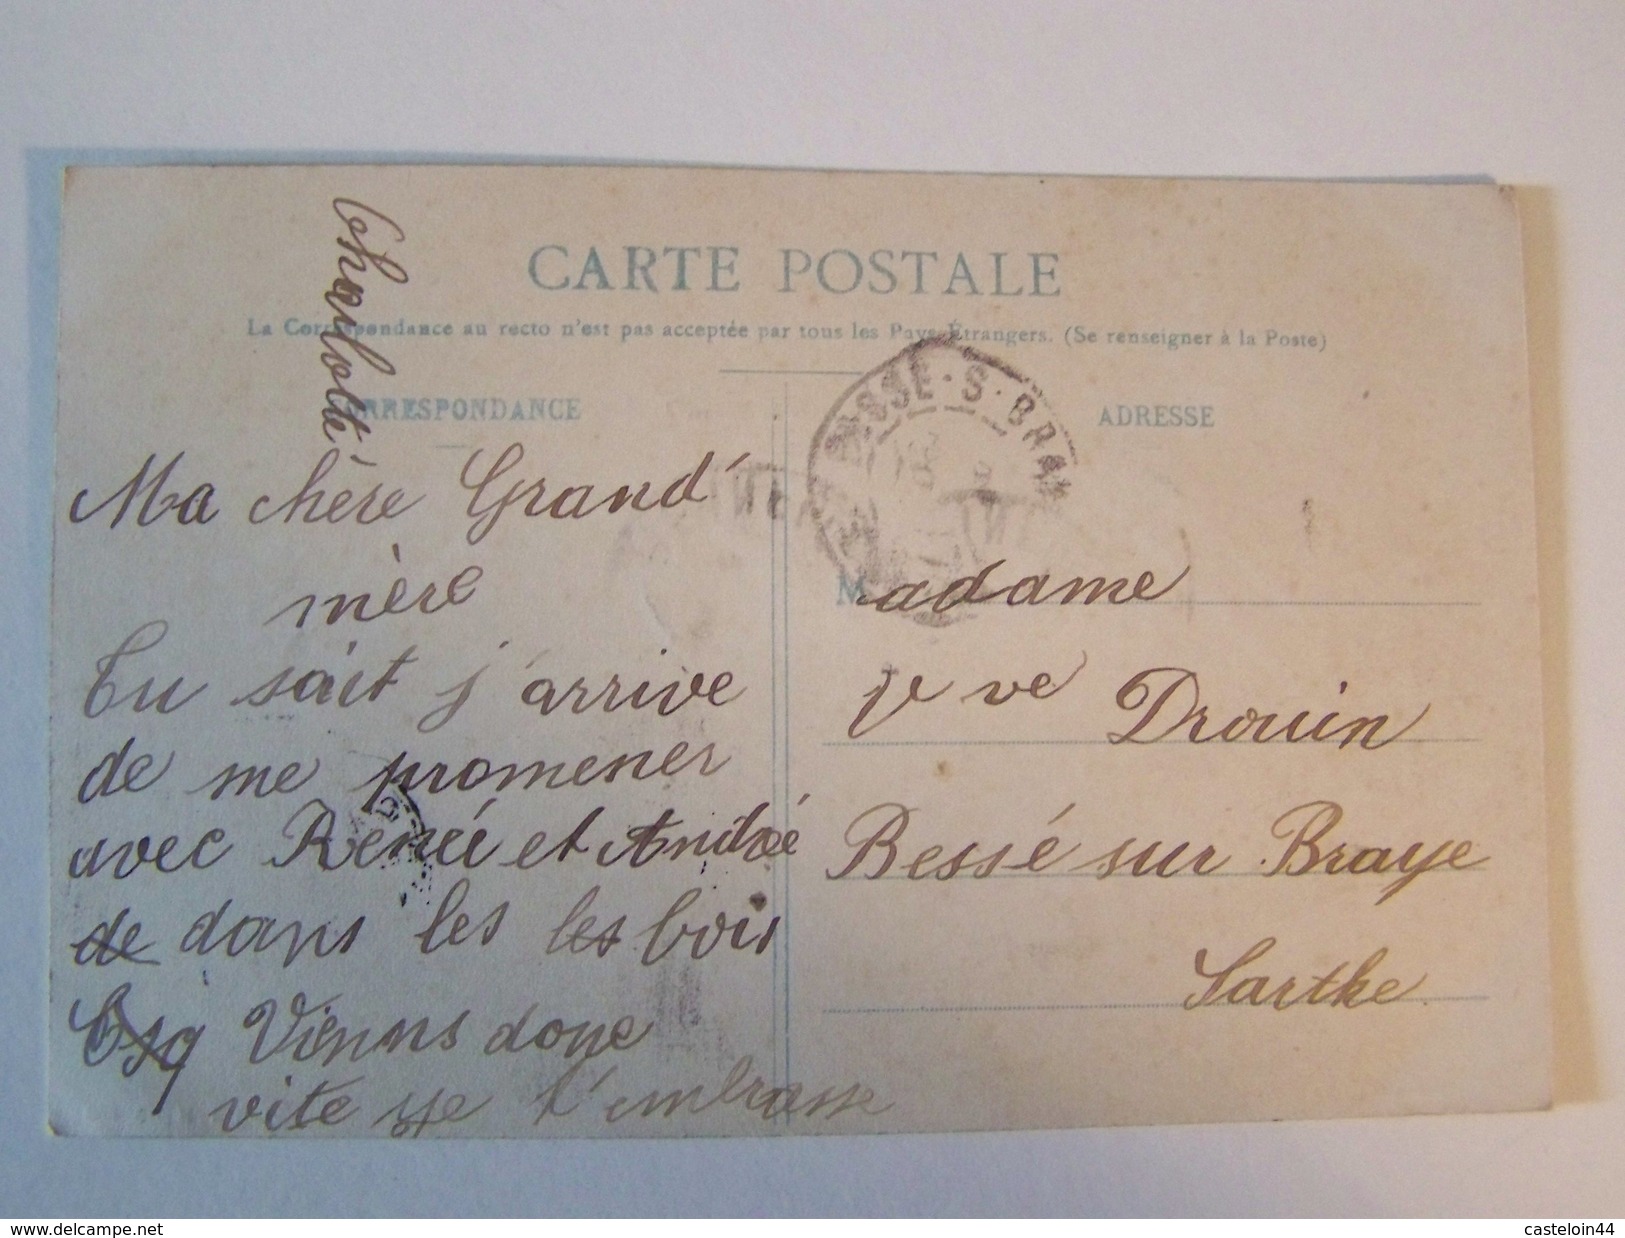 CARTE POSTALE
La Correspondance au recto n'est pas acceptée par tous les Pays Étrangers. (Se renseigner à la Poste)
CORRESPONDANCE
Ma chère Grand'
mère
Tu sait j'arrive
de me promener
avec Renée et André
de dans les les bois
Viens donc
vite je t'embrasse
Charlotte
BESSE-S-BRAYE
ADRESSE
Madame
Vve Drouin
Bessé sur Braye
Sarthe
www.delcampe.net
casteloin44